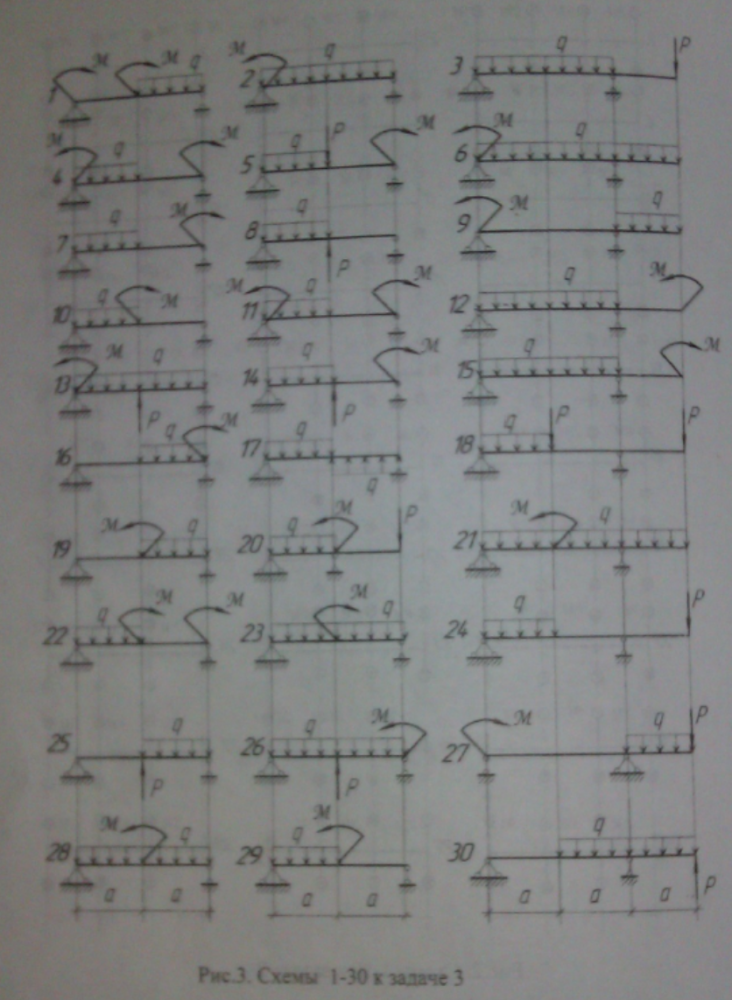 M M q M q q P
1 2 3
M q M q P M M q
4 5 6
q M q M q
7 8 9
P
q M M q M q M
10 11 12
M q q M q M
13 14 15
P P
q M q q P P
16 17 18
q
M q q M P M q
19 20 21
q M M q M q P
22 23 24
q q M M q P
25 26 27
P P
M q q M q
28 29 30
a a a a a a a P
Рис.3. Схемы 1-30 к задаче 3